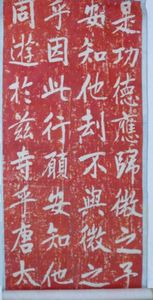 是功德應歸微之予
安知他劫不與微之
乎因此行願安知他
同遊於兹寺乎唐大